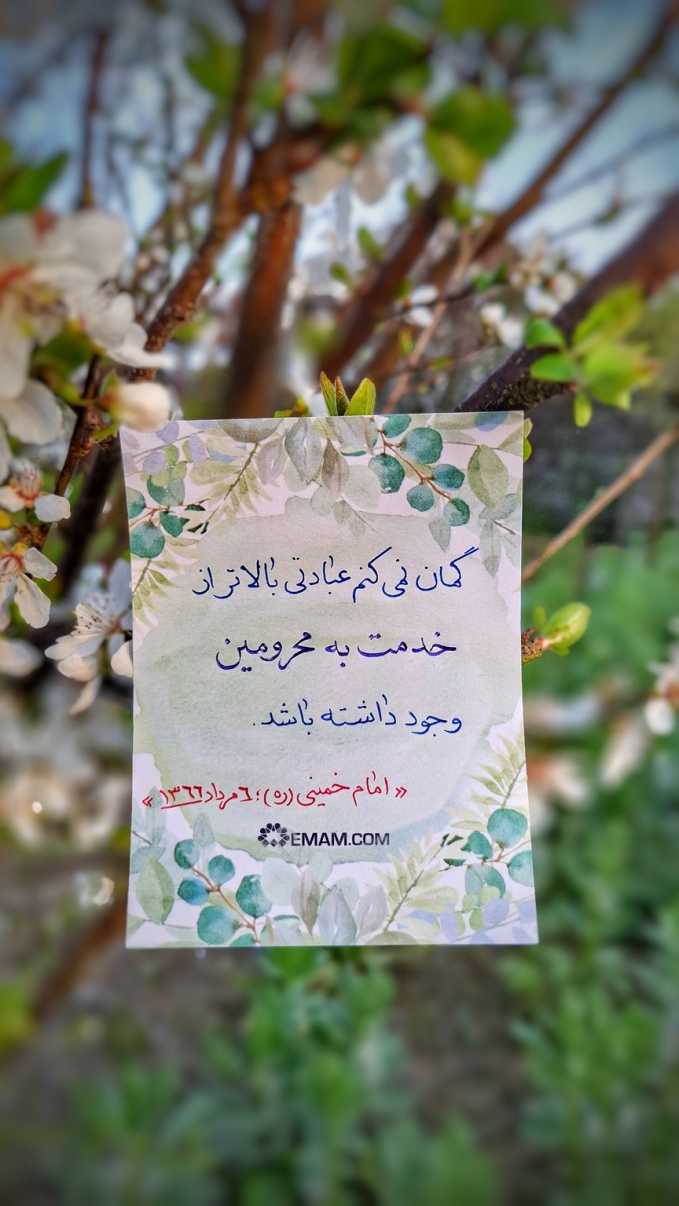 گمان نمی کنم عبادتی بالاتر از
خدمت به محرومین
وجود داشته باشد.
« امام خمینی (ره)؛ ٦ مرداد ١٣٦٦ »
EMAM.COM